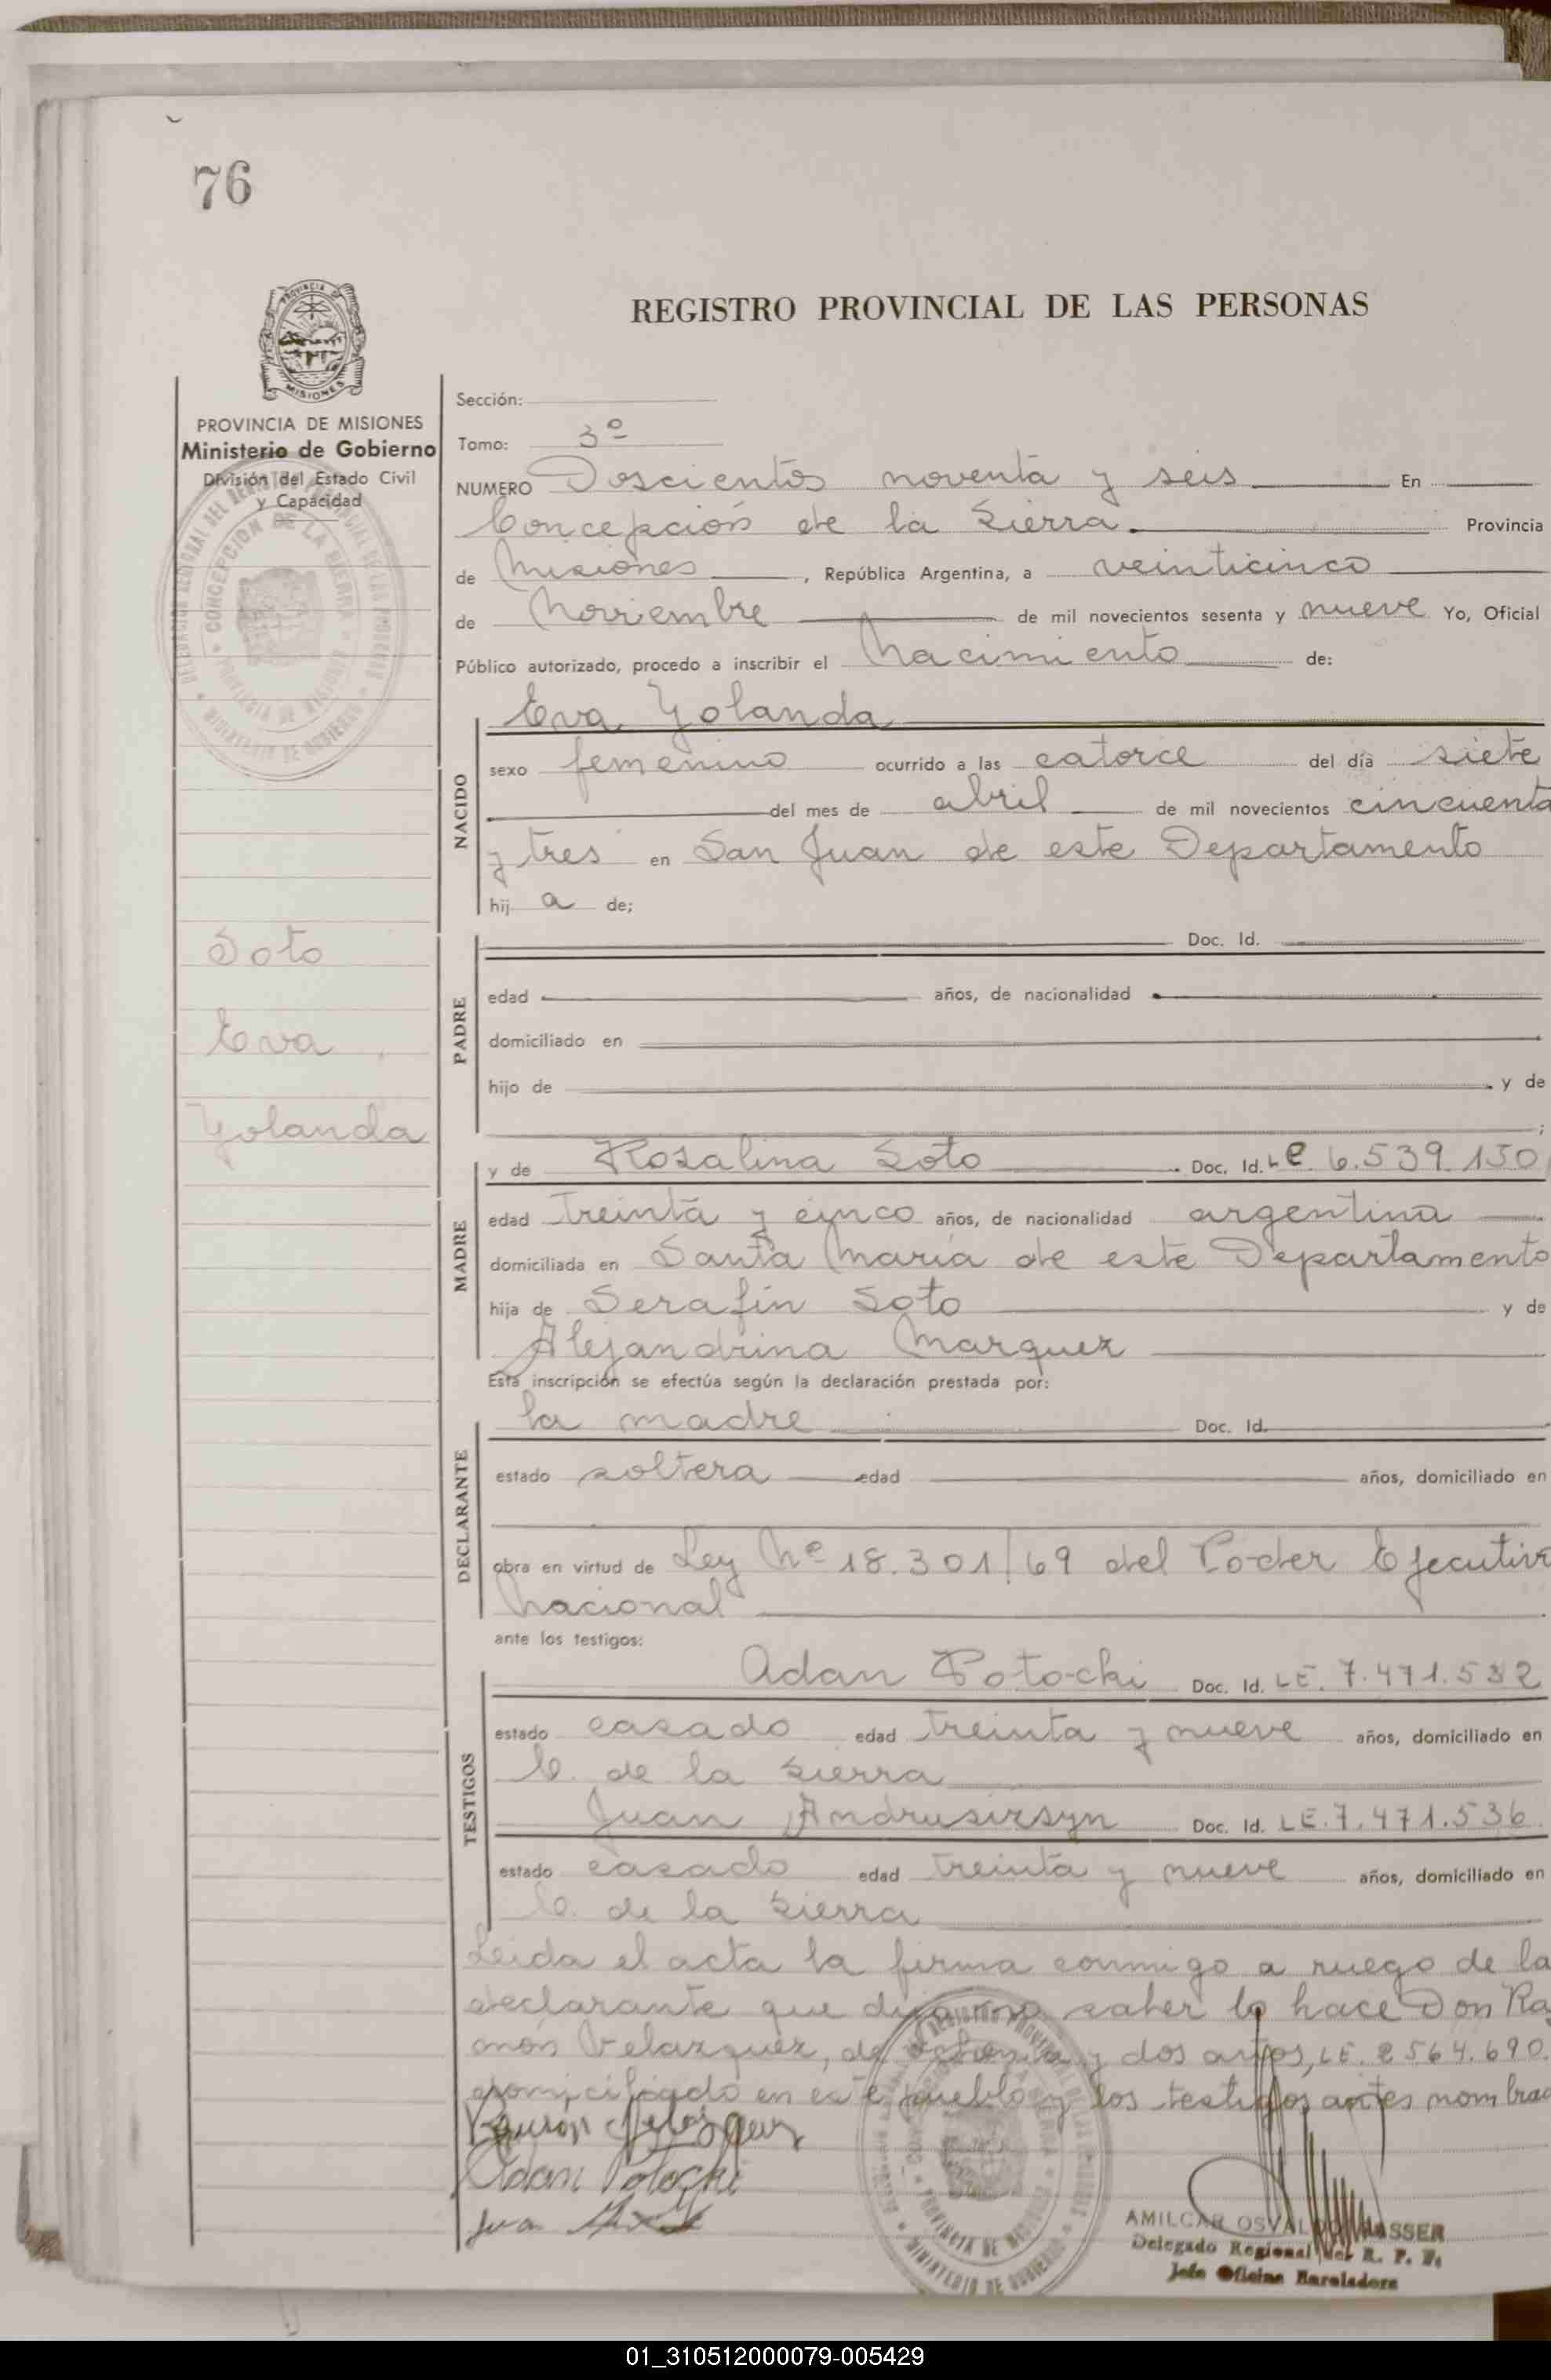 76
REGISTRO PROVINCIAL DE LAS PERSONAS
PROVINCIA DE MISIONES
Ministerio de Gobierno
División del Estado Civil
y Capacidad
Soto
Eva
Yolanda
Sección:
Tomo: 3º
NUMERO Doscientos noventa y seis En
Concepción de la Sierra. Provincia
de Misiones, República Argentina, a veinticinco
de Noviembre de mil novecientos sesenta y nueve Yo, Oficial
Público autorizado, procedo a inscribir el Nacimiento de:
NACIDO
Eva Yolanda
sexo femenino ocurrido a las catorce del día siete
del mes de abril de mil novecientos cincuenta
y tres en San Juan de este Departamento
hij a de;
PADRE
Doc. Id.
edad años, de nacionalidad
domiciliado en
hijo de y de
;
MADRE
y de Rosalina Soto Doc. Id. LC. 6.539.150
edad treinta y cinco años, de nacionalidad argentina
domiciliada en Santa María de este Departamento
hija de Serafín Soto y de
Alejandrina Marquez
Esta inscripción se efectúa según la declaración prestada por:
DECLARANTE
la madre Doc. Id.
estado soltera edad años, domiciliado en
obra en virtud de Ley Nº 18.301/69 del Poder Ejecutivo
Nacional
ante los testigos:
TESTIGOS
Adan Potocki Doc. Id. LE. 7.471.532
estado casado edad treinta y nueve años, domiciliado en
C. de la Sierra
Juan Doc. Id. LE. 7.471.536
estado casado edad treinta y nueve años, domiciliado en
C. de la Sierra
Leida el acta la firma conmigo a ruego de la
declarante que dijo no saber lo hace Don Ra
món Velazquez, de y dos años, LE. 2564.690.
domiciliado en este pueblo y los testigos antes nombrad
Ramón Velazquez
Adan Potocki
Juan
AMILCAR OSVALDO
Delegado Regional del R. P. P.
Jefe Oficina
01_310512000079-005429